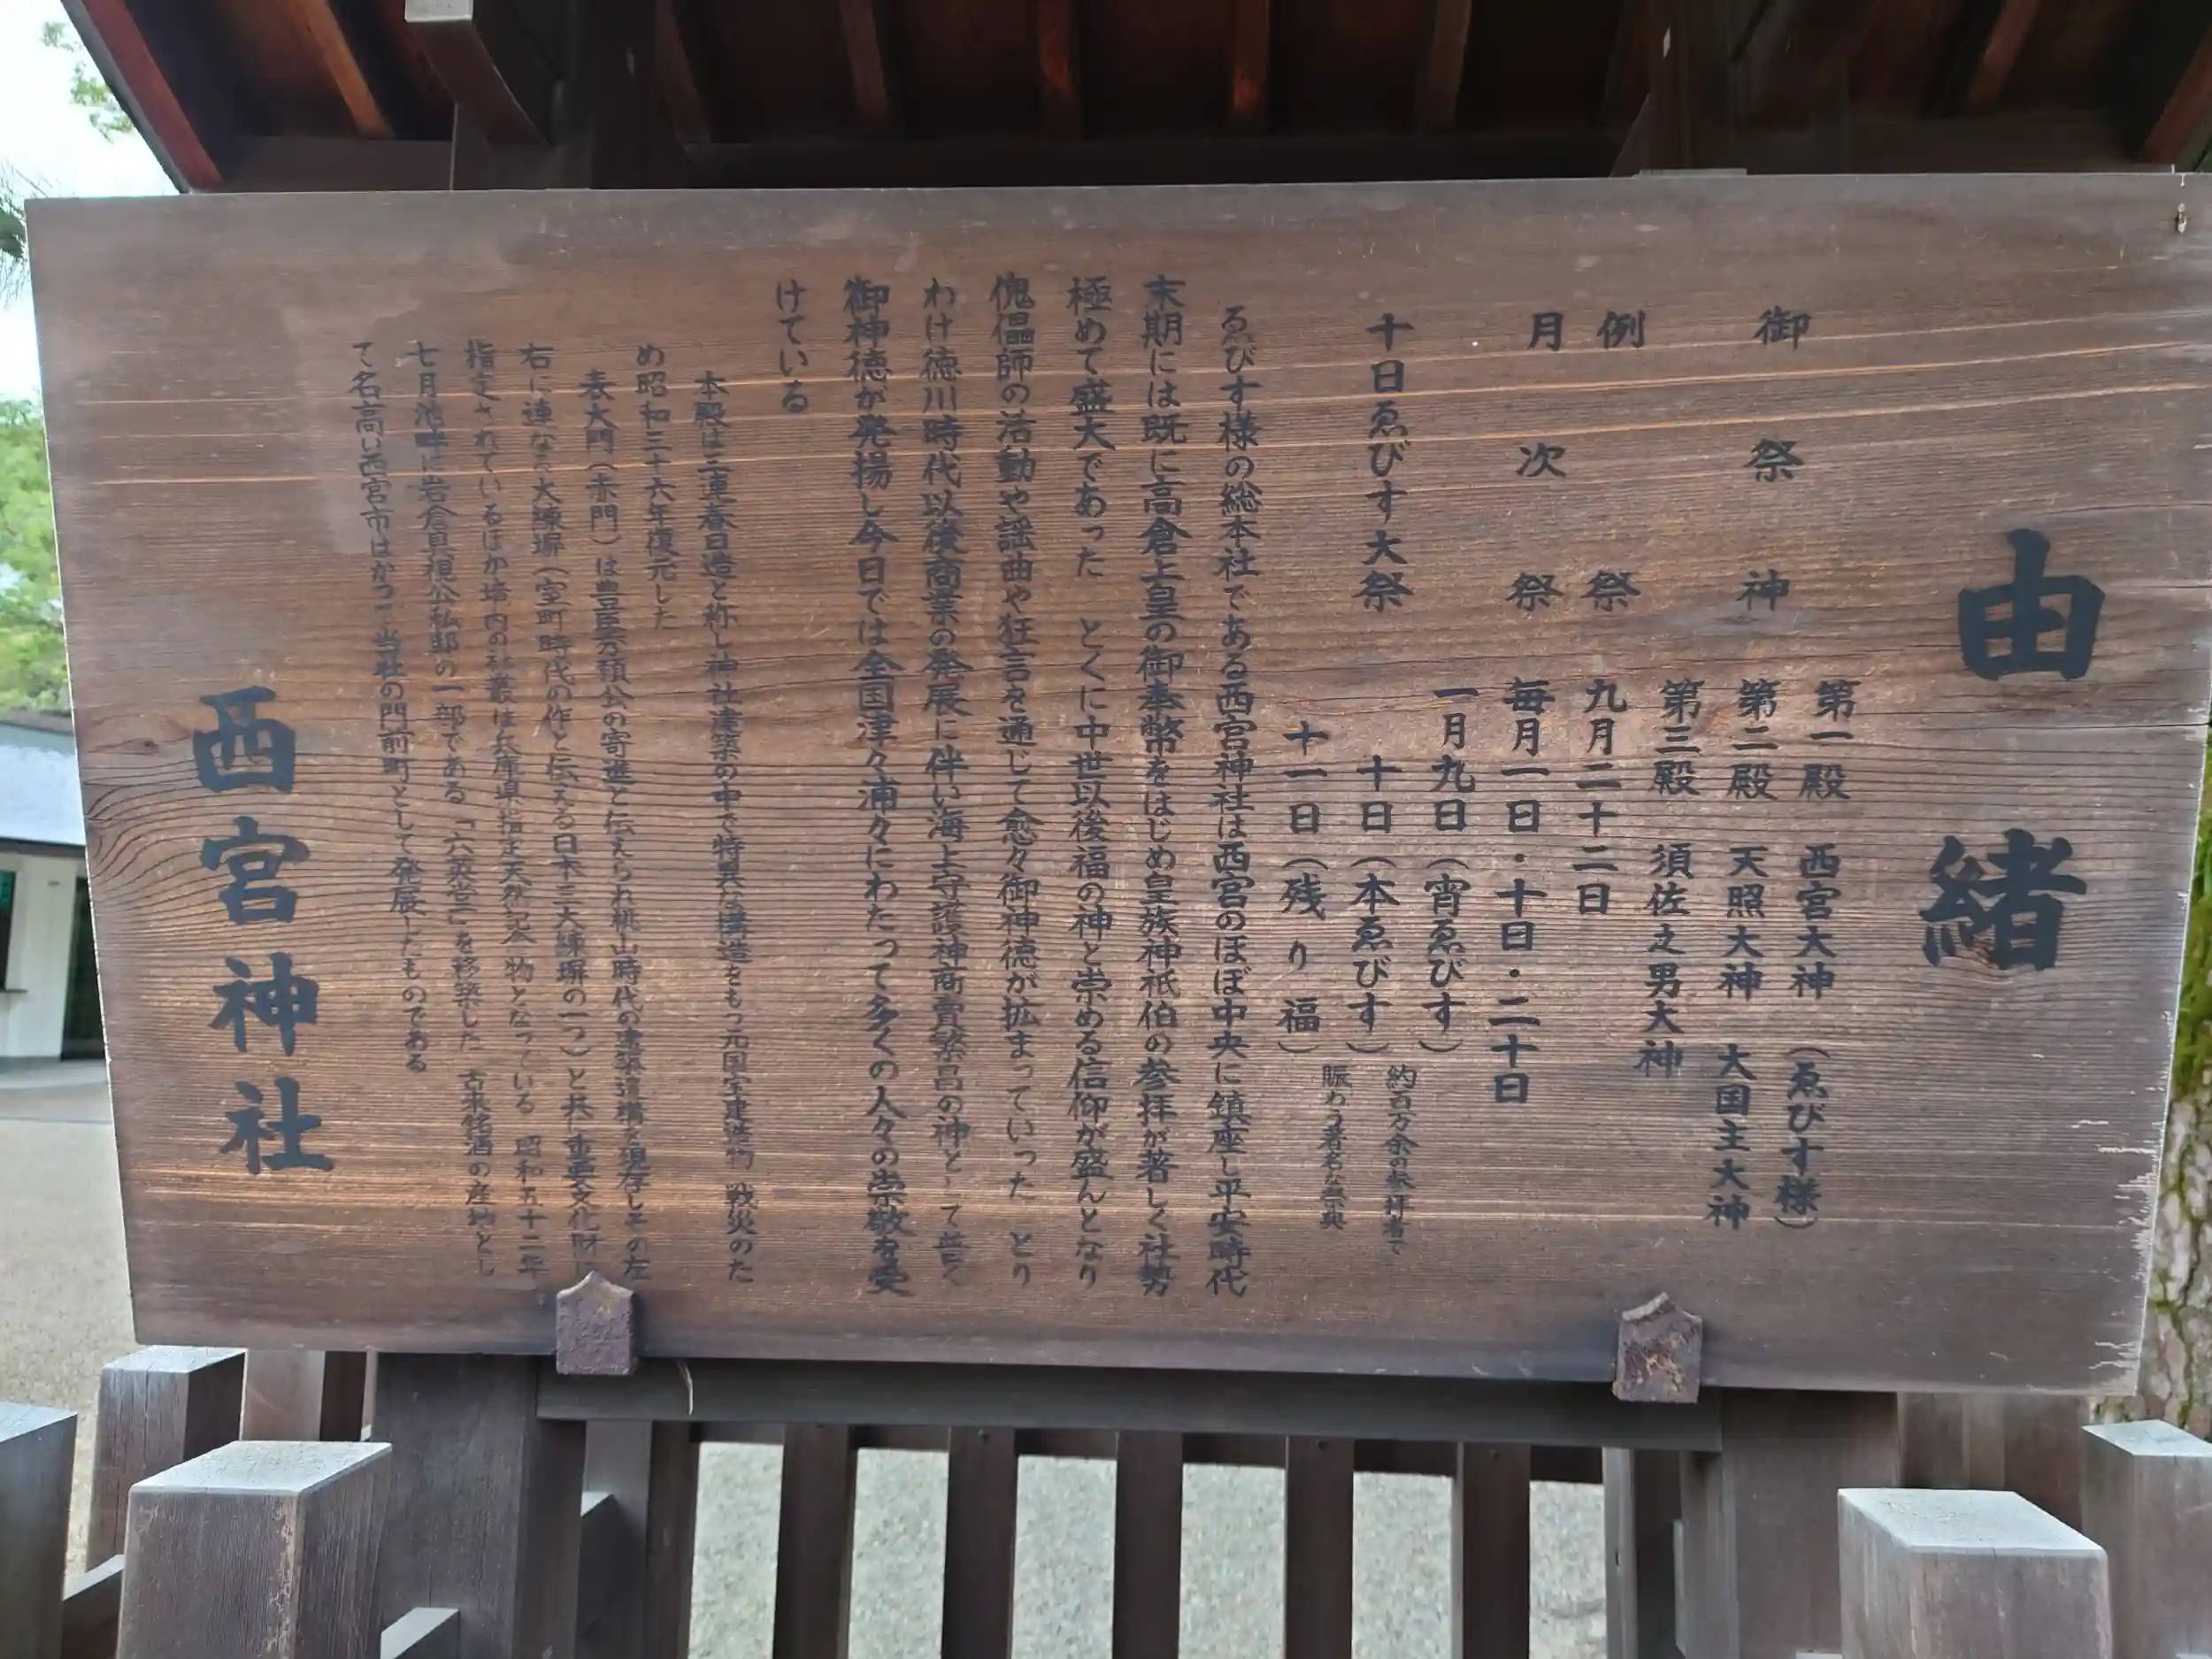 由緒
御祭神
第一殿 西宮大神 (ゑびす様)
第二殿 天照大神 大国主大神
第三殿 須佐之男大神
例祭 九月二十二日
月次祭 毎月一日・十日・二十日
十日ゑびす大祭
一月九日(宵ゑびす)
十日(本ゑびす)
十一日(残り福)
約百万余の参拝者で
賑わう著名な祭典
ゑびす様の総本社である西宮神社は西宮のほぼ中央に鎮座し平安時代
末期には既に高倉上皇の御奉幣をはじめ皇族神祇伯の参拝が著しく社勢
極めて盛大であった とくに中世以後福の神と崇める信仰が盛んとなり
傀儡師の活動や謡曲や狂言を通じて愈々御神徳が拡まっていった とり
わけ徳川時代以後商業の発展に伴い海上守護神商賣繁昌の神として普く
御神徳が発揚し今日では全国津々浦々にわたって多くの人々の崇敬を受
けている
本殿は三連春日造と称し神社建築の中で特異な構造をもつ元国宝建造物 戦災のた
め昭和三十六年復元した
表大門(赤門)は豊臣秀頼公の寄進と伝えられ桃山時代の建築遺構を現存しその左
右に連なる大練塀(室町時代の作と伝える日本三大練塀の一つ)と共に重要文化財に
指定されているほか境内の社叢は兵庫県指定天然記念物となっている 昭和五十二年
七月池畔に岩倉具視公私邸の一部である「六英堂」を移築した 古来銘酒の産地とし
て名高い西宮市はかつて当社の門前町として発展したものである
西宮神社